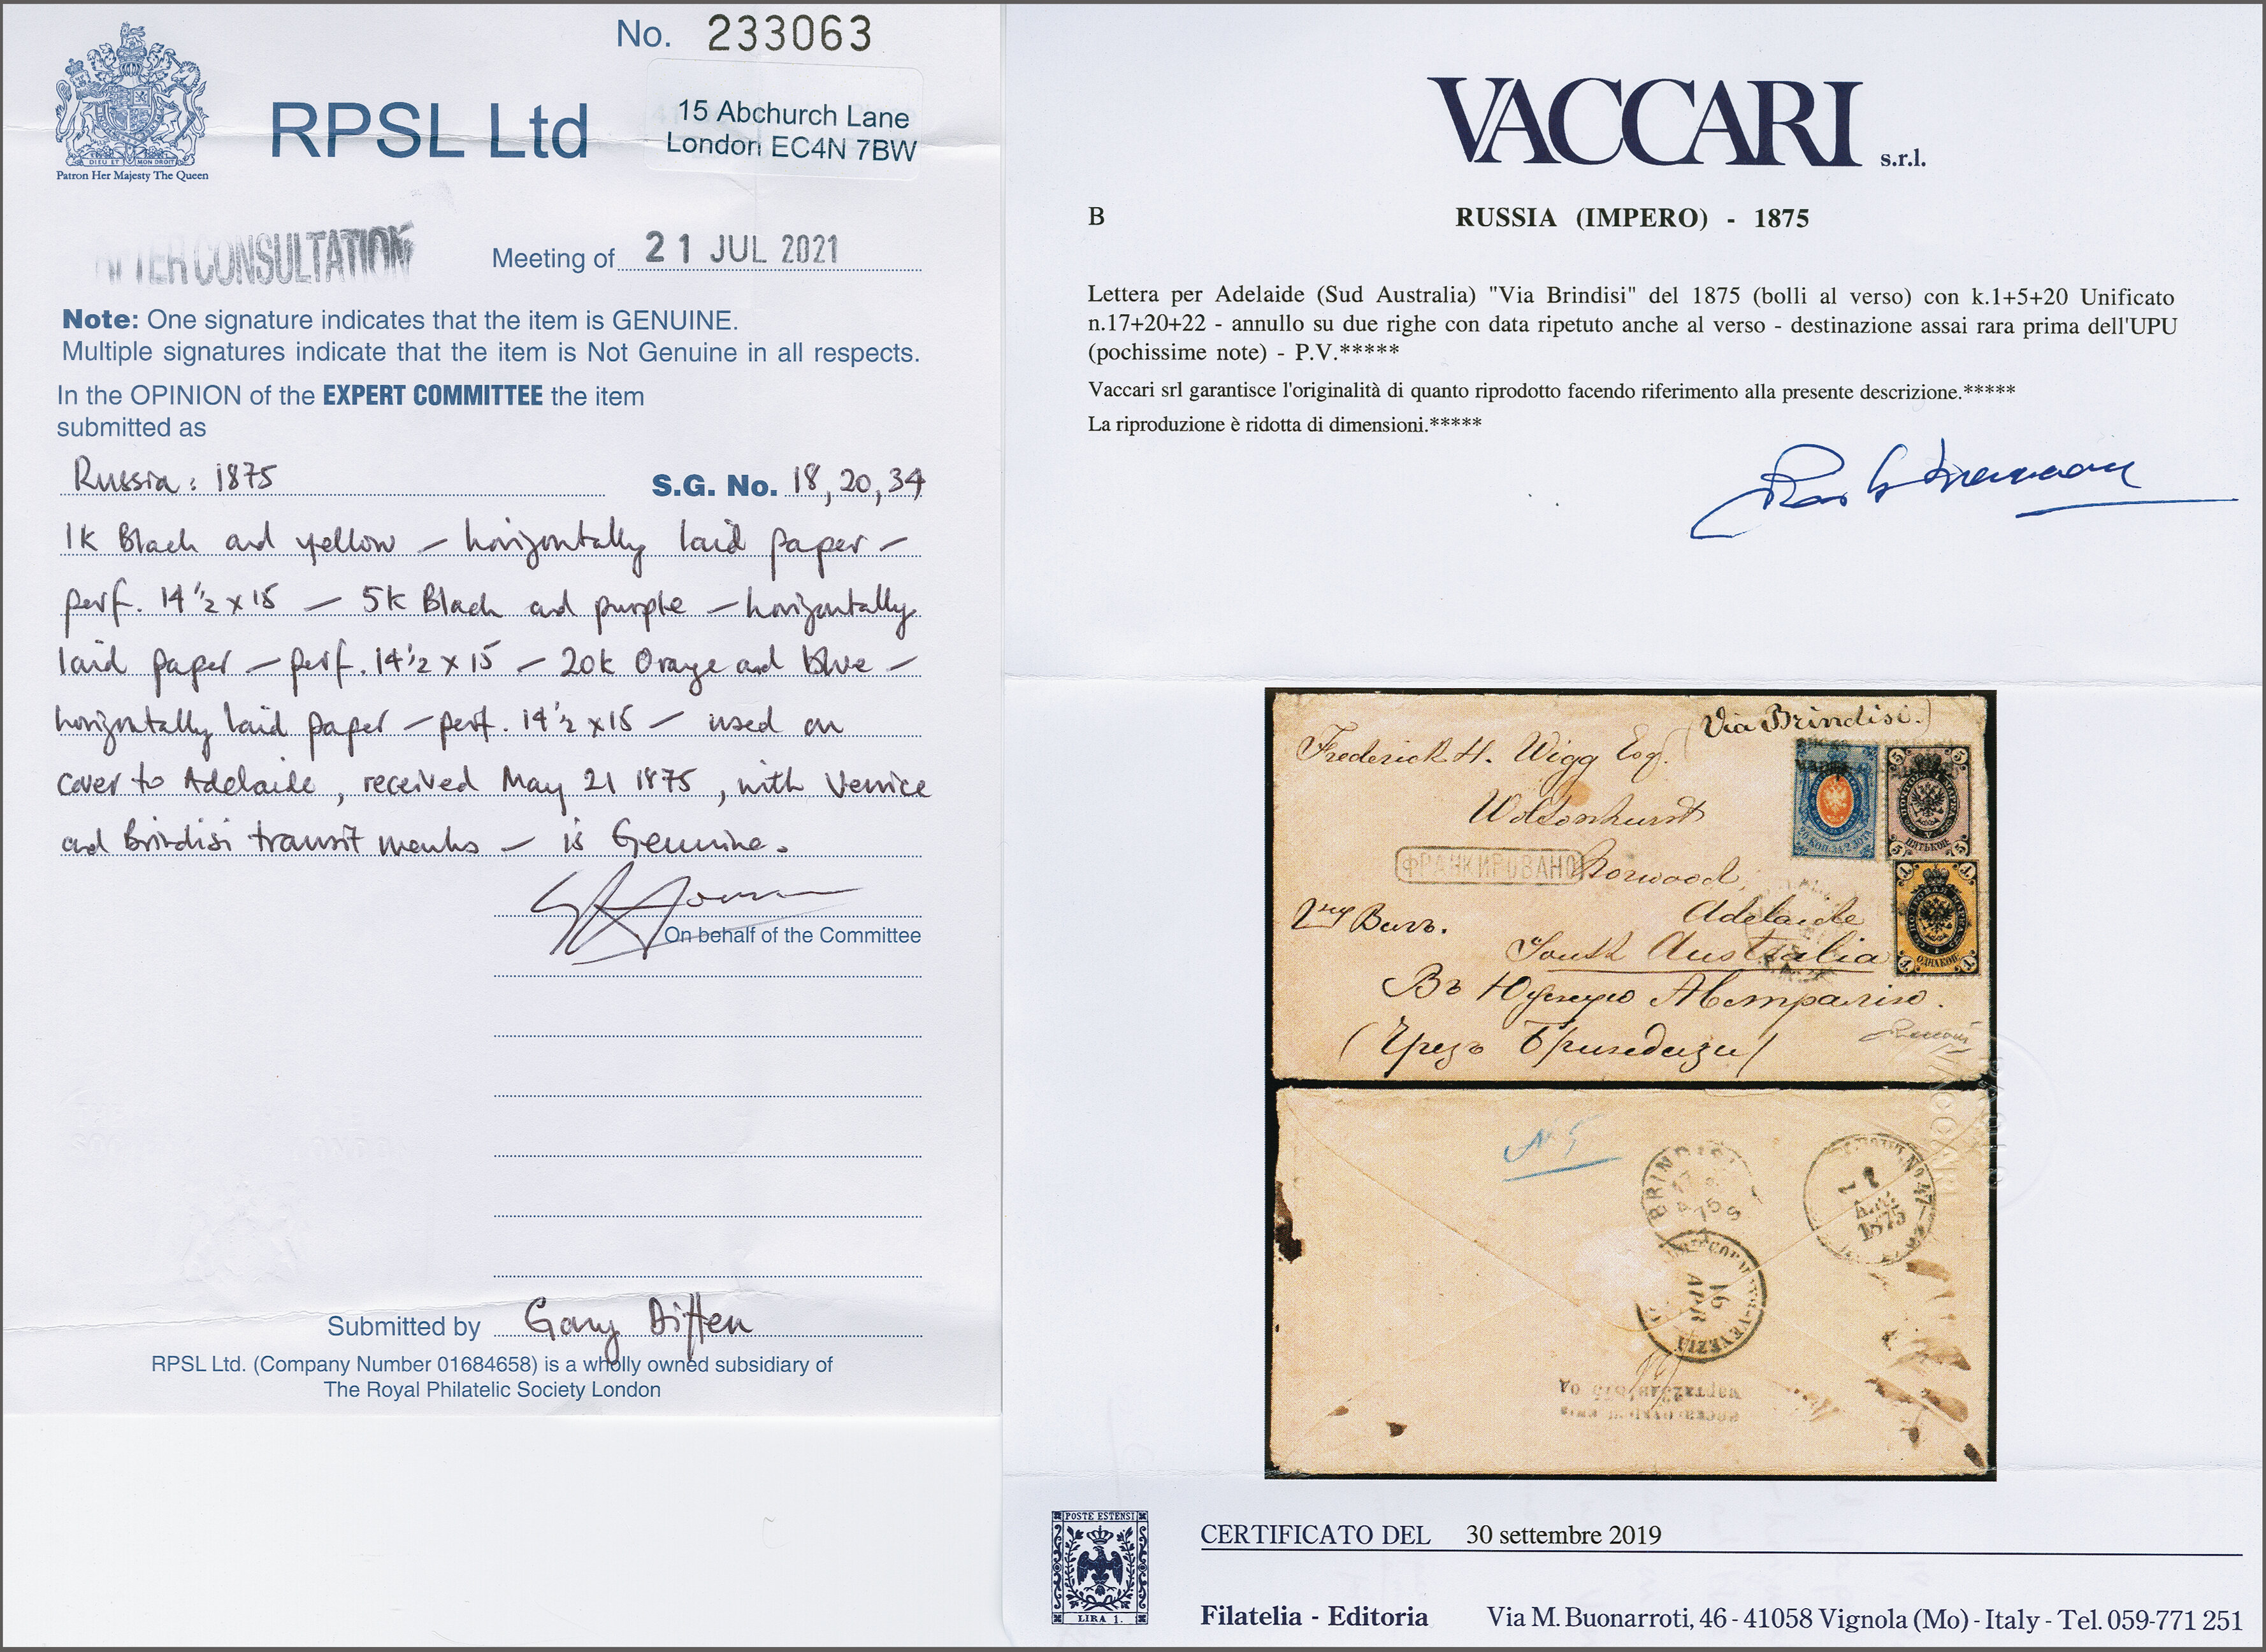 No. 233063
RPSL Ltd
15 Abchurch Lane
London EC4N 7BW
DIEU ET MON DROIT
Patron Her Majesty The Queen
AFTER CONSULTATION
Meeting of 21 JUL 2021
Note: One signature indicates that the item is GENUINE.
Multiple signatures indicate that the item is Not Genuine in all respects.
In the OPINION of the EXPERT COMMITTEE the item
submitted as
Russia: 1875 S.G. No. 18, 20, 34
1k Black and yellow – horizontally laid paper –
perf. 14½ x 15 – 5k Black and purple – horizontally
laid paper – perf. 14½ x 15 – 20k Orange and blue –
horizontally laid paper – perf. 14½ x 15 – used on
cover to Adelaide, received May 21 1875, with Venice
and Brindisi transit marks – is Genuine.
On behalf of the Committee
Submitted by Gary Diffen
RPSL Ltd. (Company Number 01684658) is a wholly owned subsidiary of
The Royal Philatelic Society London
VACCARI s.r.l.
B
RUSSIA (IMPERO) - 1875
Lettera per Adelaide (Sud Australia) "Via Brindisi" del 1875 (bolli al verso) con k.1+5+20 Unificato
n.17+20+22 - annullo su due righe con data ripetuto anche al verso - destinazione assai rara prima dell'UPU
(pochissime note) - P.V.*****
Vaccari srl garantisce l'originalità di quanto riprodotto facendo riferimento alla presente descrizione.*****
La riproduzione è ridotta di dimensioni.*****
(Via Brindisi.)
Frederick H. Wigg Esq.
ФРАНКИРОВАНО
Norwood,
Adelaide
South Australia
Въ Южную Австралію.
(Чрезъ Бриндизи)
5 5
ПЯТЬ КОП.
5 5
1 1
ОДНА КОП.
1 1
N 5
BRINDISI
75
№ 47
1875
16
APR
VENEZIA
POSTE ESTENSI
LIRA 1.
CERTIFICATO DEL 30 settembre 2019
Filatelia - Editoria Via M. Buonarroti, 46 - 41058 Vignola (Mo) - Italy - Tel. 059-771 251